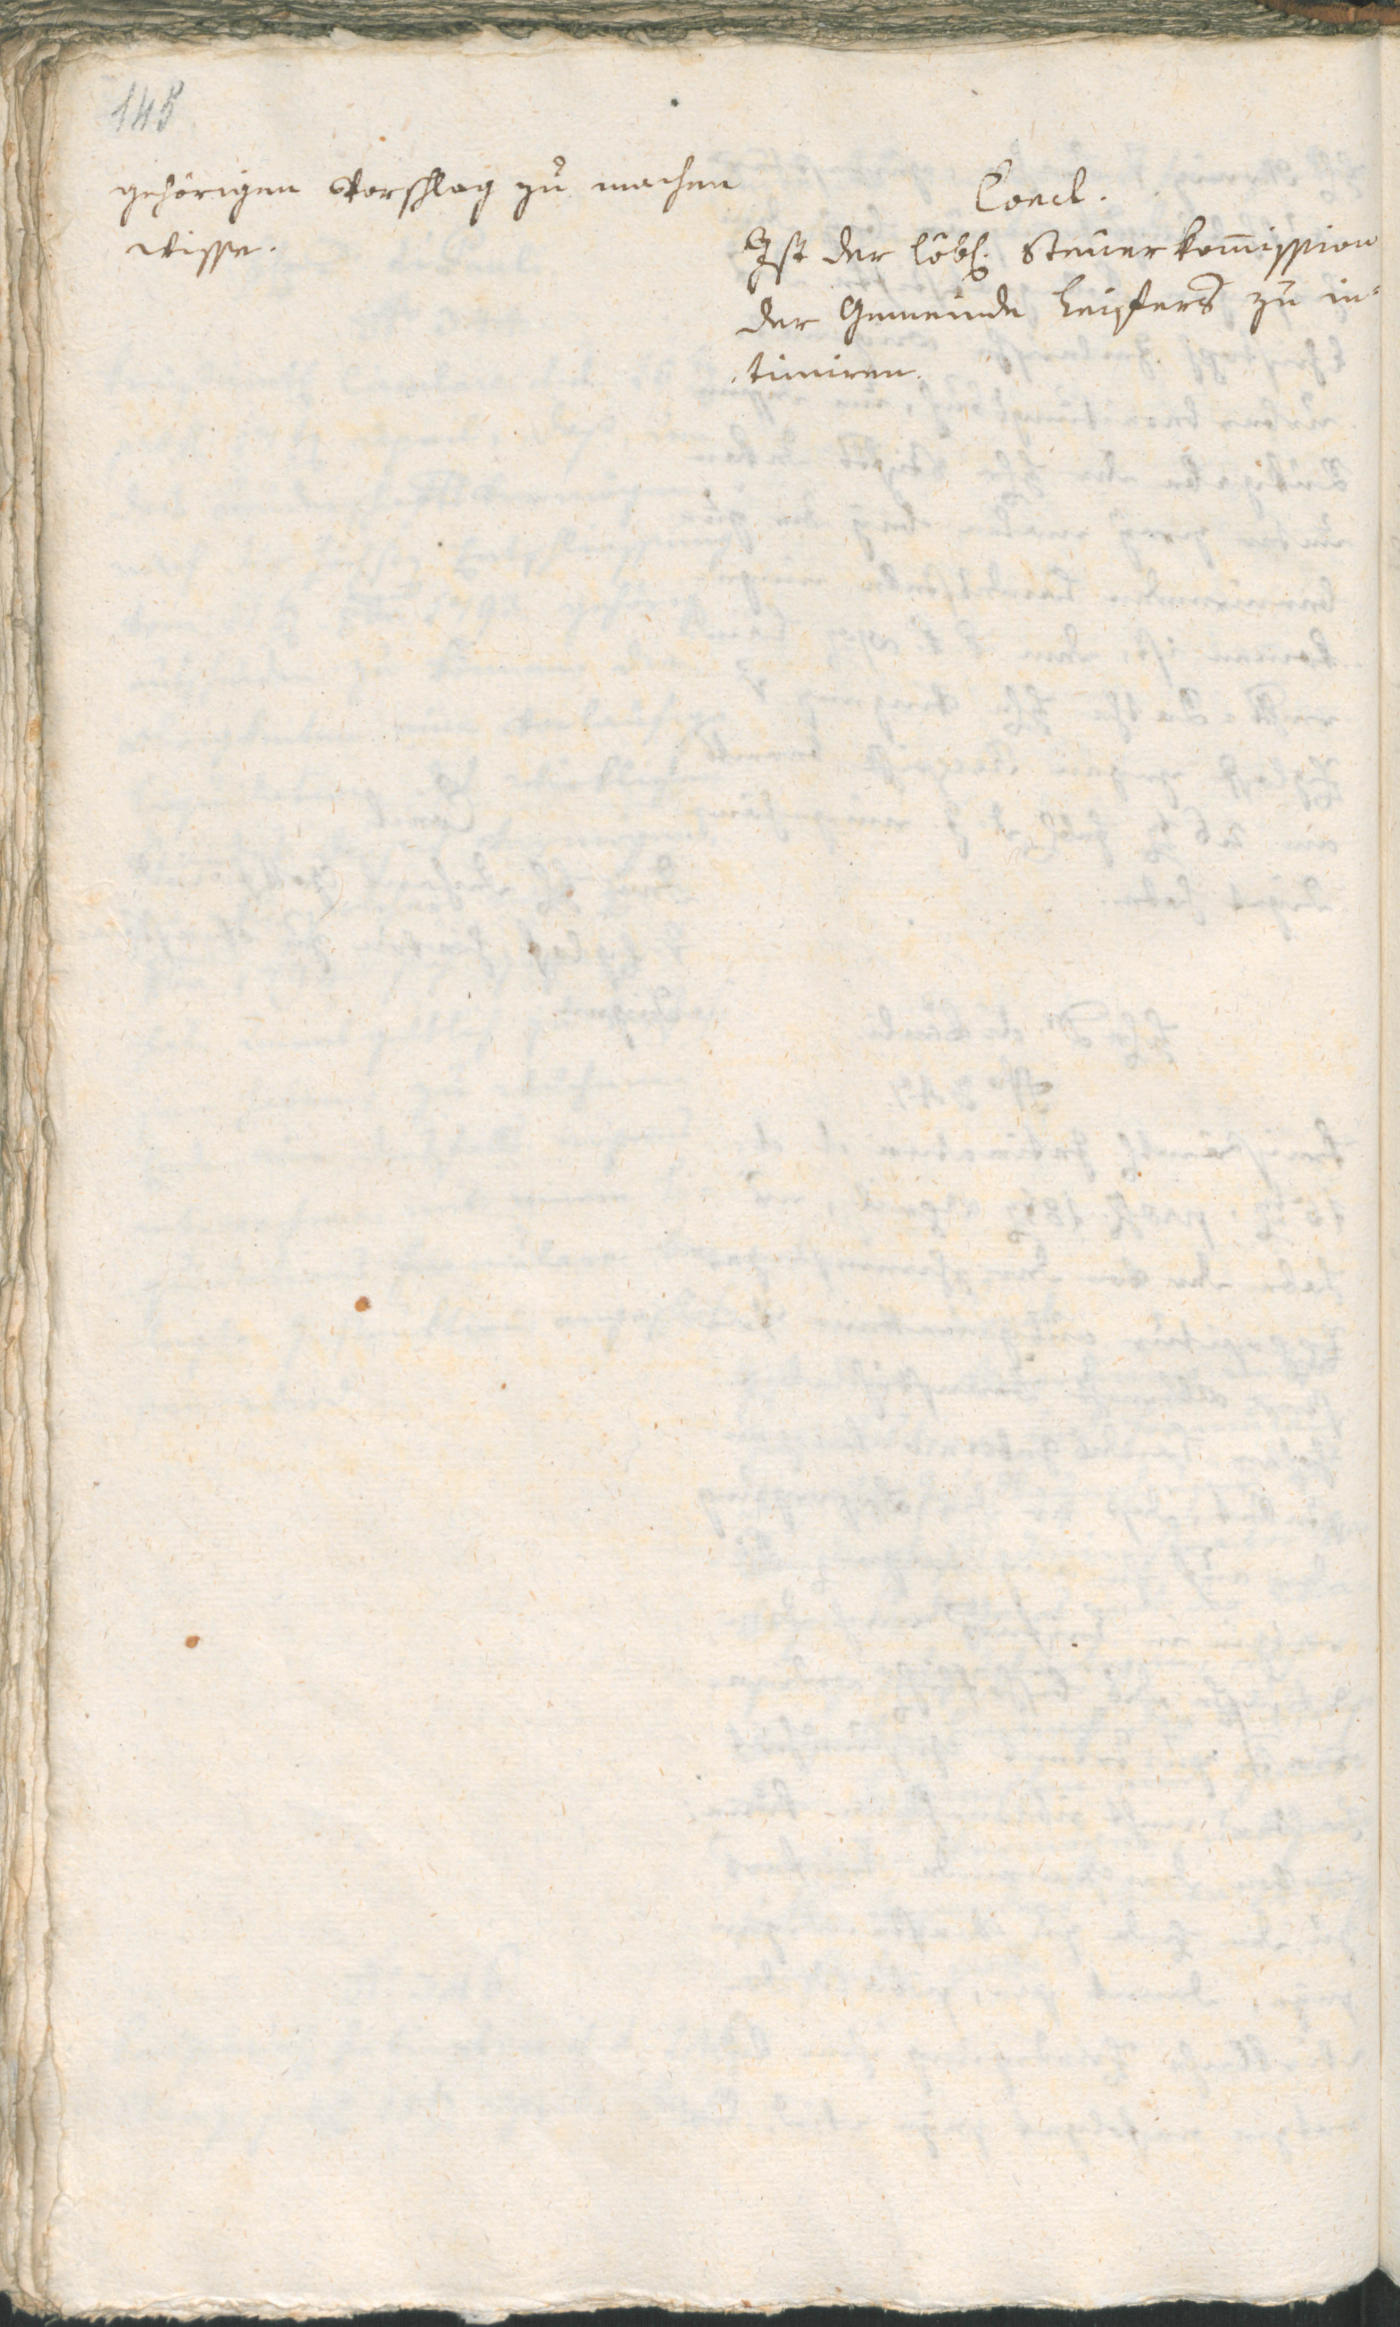 145
gehörigen Vorschlag zu machen
wisse.
Concl.
Ist der löbl. Steuerkom̅ission
der Gemeinde Leifers zu in=
timiren.